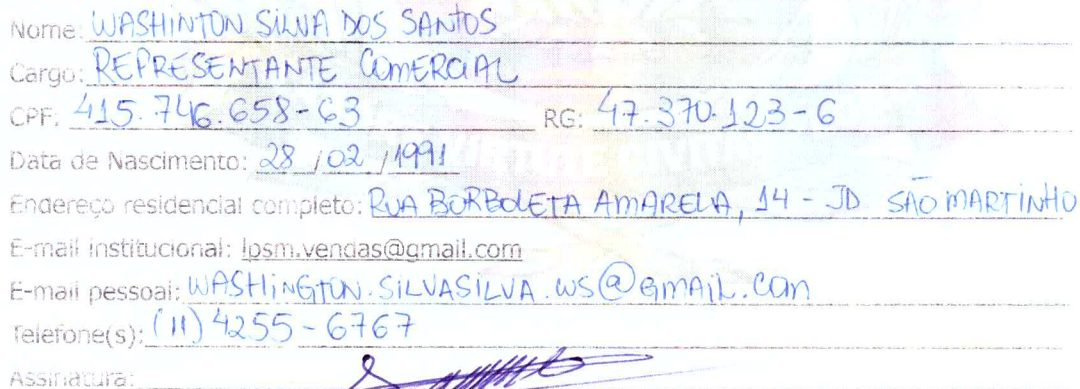 Nome: WASHINTON SILVA DOS SANTOS
Cargo: REPRESENTANTE COMERCIAL
CPF: 415.746.658-63 RG: 47.370.123-6
Data de Nascimento: 28/02/1991
Endereço residencial completo: RUA BORBOLETA AMARELA, 14 - JD SÃO MARTINHO
E-mail institucional: lpsm.vendas@gmail.com
E-mail pessoal: WASHINGTON.SILVASILVA.WS@GMAIL.COM
Telefone(s): (11) 4255-6767
Assinatura: